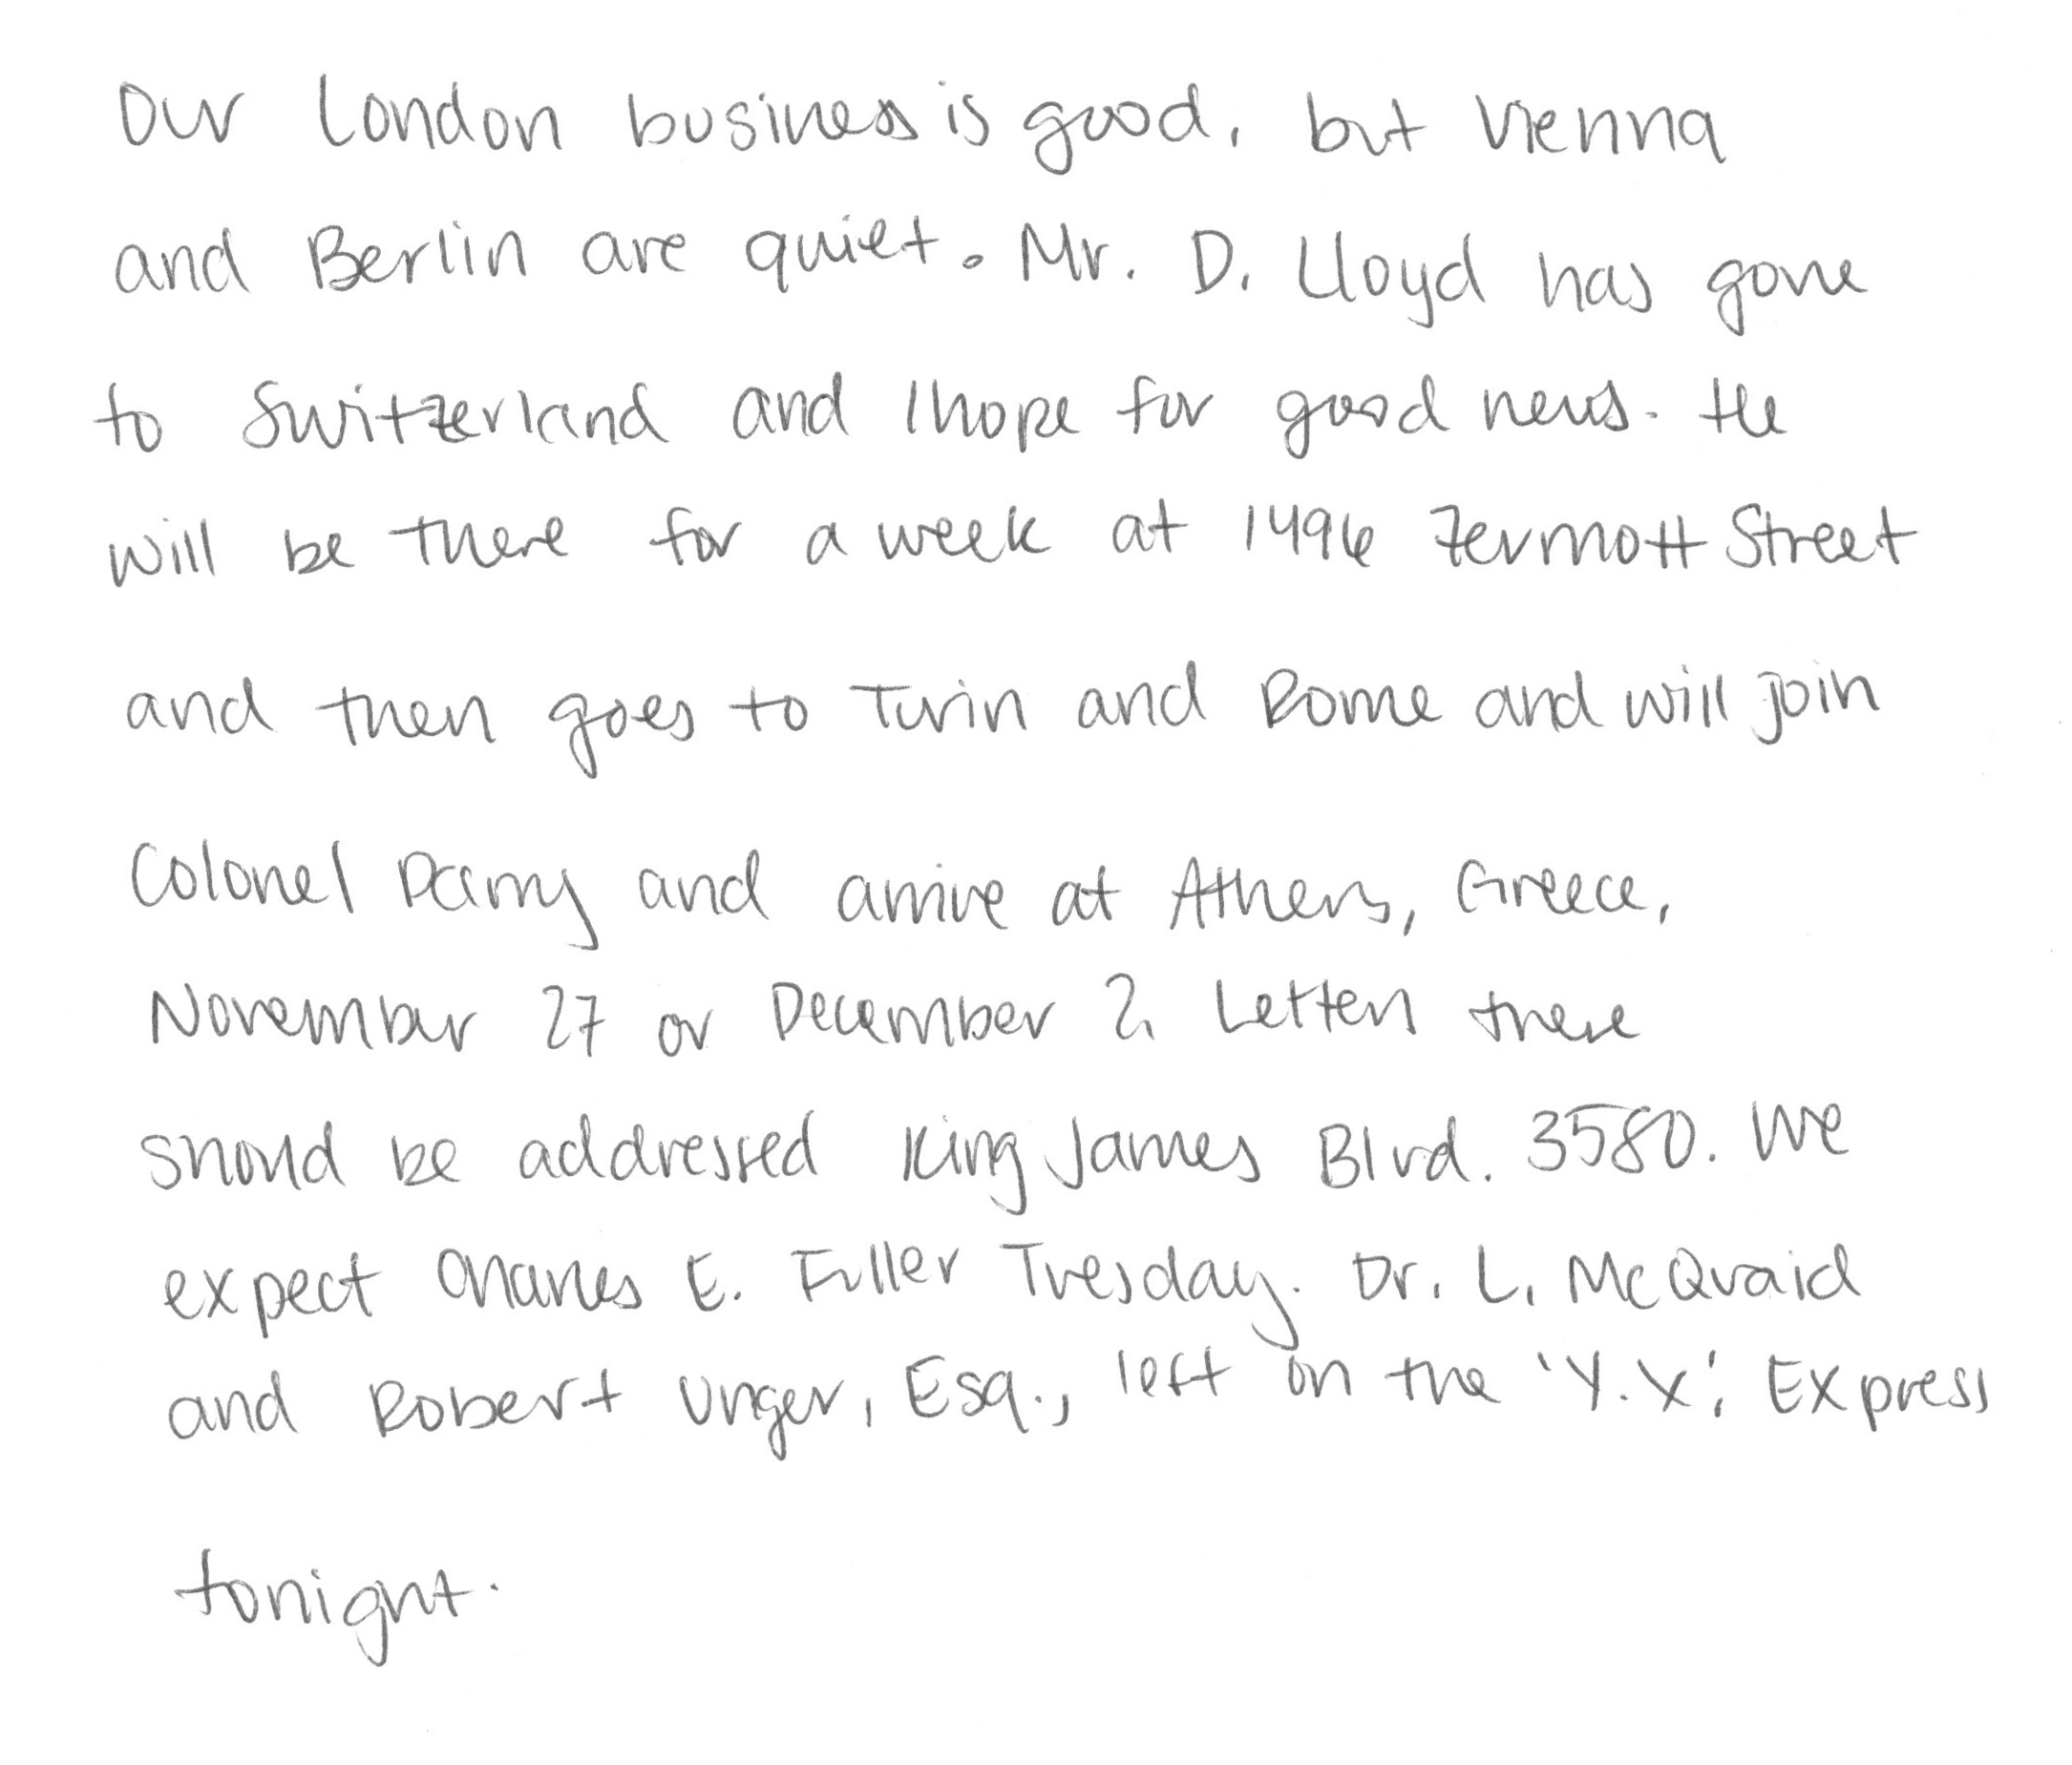 Our London business is good, but Vienna
and Berlin are quiet. Mr. D. Lloyd has gone
to Switzerland and I hope for good news. He
will be there for a week at 1496 Zermott Street
and then goes to Turin and Rome and will join
Colonel Parry and arrive at Athens, Greece,
November 27 or December 2. Letters there
should be addressed King James Blvd. 3580. We
expect Charles E. Fuller Tuesday. Dr. L. McQuaid
and Robert Unger, Esq., left on the 'Y.X.' Express
tonight.